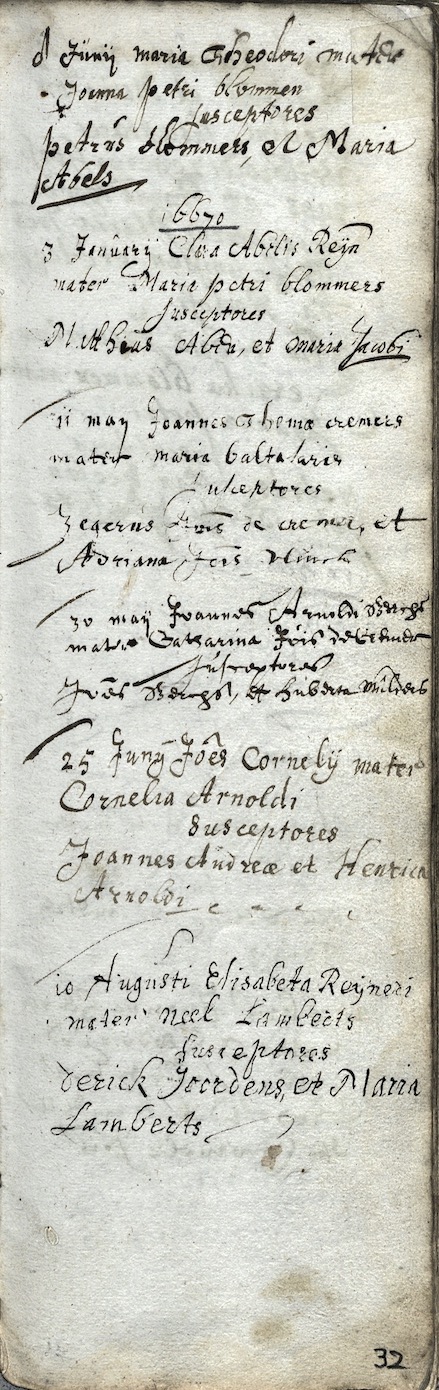 Junij maria Theodori mater
Joanna petri blommen
susceptores
petrus blommers, et Maria
Abels
16670
3 January Clara Abelis Reyn
mater Maria petri blommers
susceptores
Mathias Abeu, et maria Jacobi
11 may Joannes Thomæ cremers
mater maria baltasaris
susceptores
Zegerus Jois de cremer, et
Adriana Jois
30 may Joannes Arnoldi
mater Catharina Jois de Cremer
susceptores
Joēs et huberta Milders
25 Juny Joēs Cornelij mater
Cornelia Arnoldi
susceptores
Joannes Andreæ et Henrica
Arnoldi
10 Augusti Elisabeta Reyneri
mater neel Lamberts
susceptores
derick Joordens, et Maria
Lamberts
32